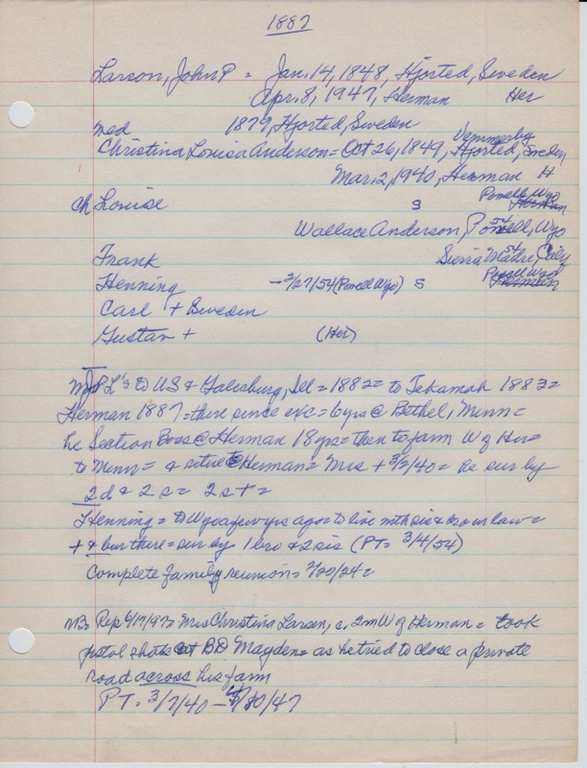 1887
Larson, John P = Jan. 14, 1848, Hjorted, Sweden
Apr. 8, 1947, Herman Her
med 1879, Hjorted, Sweden
Vemmerby
Christina Louisa Anderson = Oct 26, 1849, Hjorted, Sweden
Mar. 2, 1940, Herman H
Powell, Wyo
ch Louise S Herman
Wallace Anderson, Powell, Wyo
54
Frank Sierra Madre, Calif
54
Powell Wyo
Henning - 2/27/54 (Powell Wyo) S Herman
Carl + Sweden
Gustav + (Her)
L's to US & Galesburg, Ill = 1882 = to Tekamah 1883 =
Herman 1887 = there since exc = 6 yrs @ Bethel, Minn =
he Section Boss @ Herman 18 yrs = then to farm W of Her =
to Minn = & retire @ Herman = Mrs + 3/2/40 = be sur by
2 d & 2 s = 2 s + =
Henning = to Wyo a few yrs ago = to live with sis & bro in law =
+ & bur there = sur by 1 bro & 2 sis (PT = 3/4/54)
Complete family reunion = 7/20/24 =
NB = Rep 4/17/97 = Mrs Christina Larsen, c. 2m W of Herman = took
pistol shots at BD Mayden = as he tried to close a private
road across his farm
PT = 3/7/40 - 4/10/47